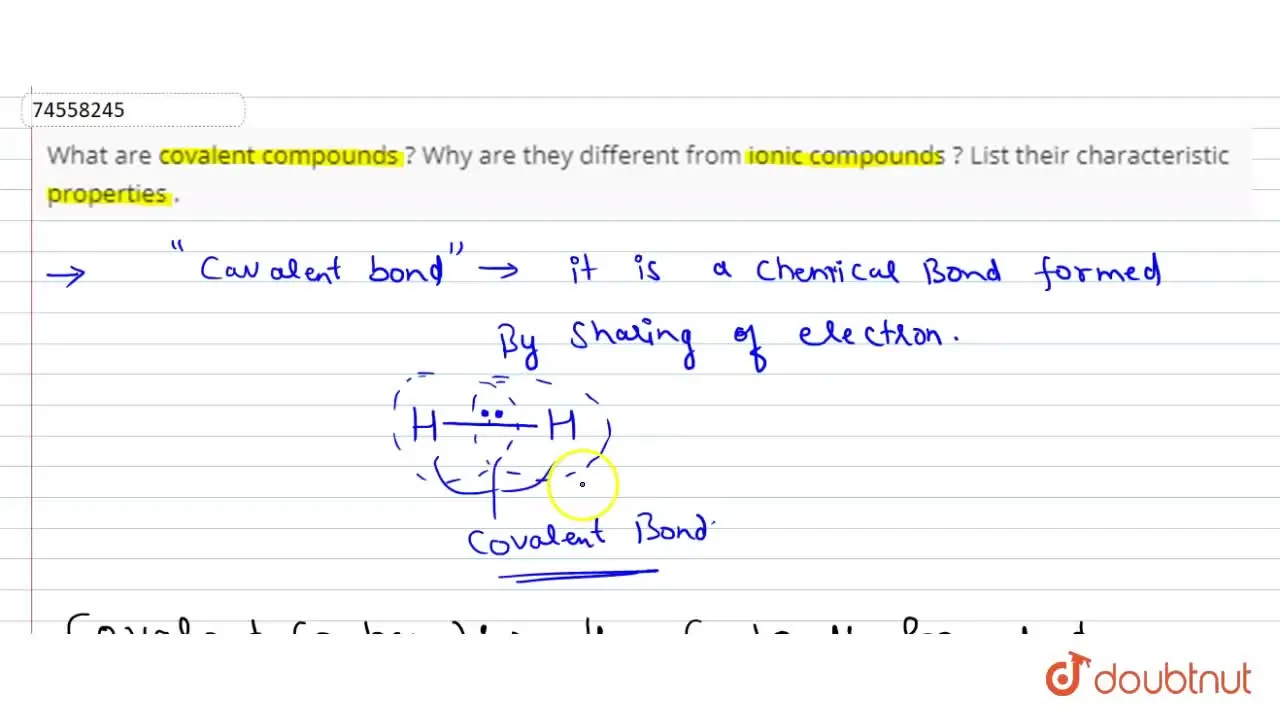 74558245
What are covalent compounds ? Why are they different from ionic compounds ? List their characteristic
properties .
→ "Covalent bond" → it is a Chemical Bond formed
By Sharing of electron.
H H
Covalent Bond
Covalent
doubtnut